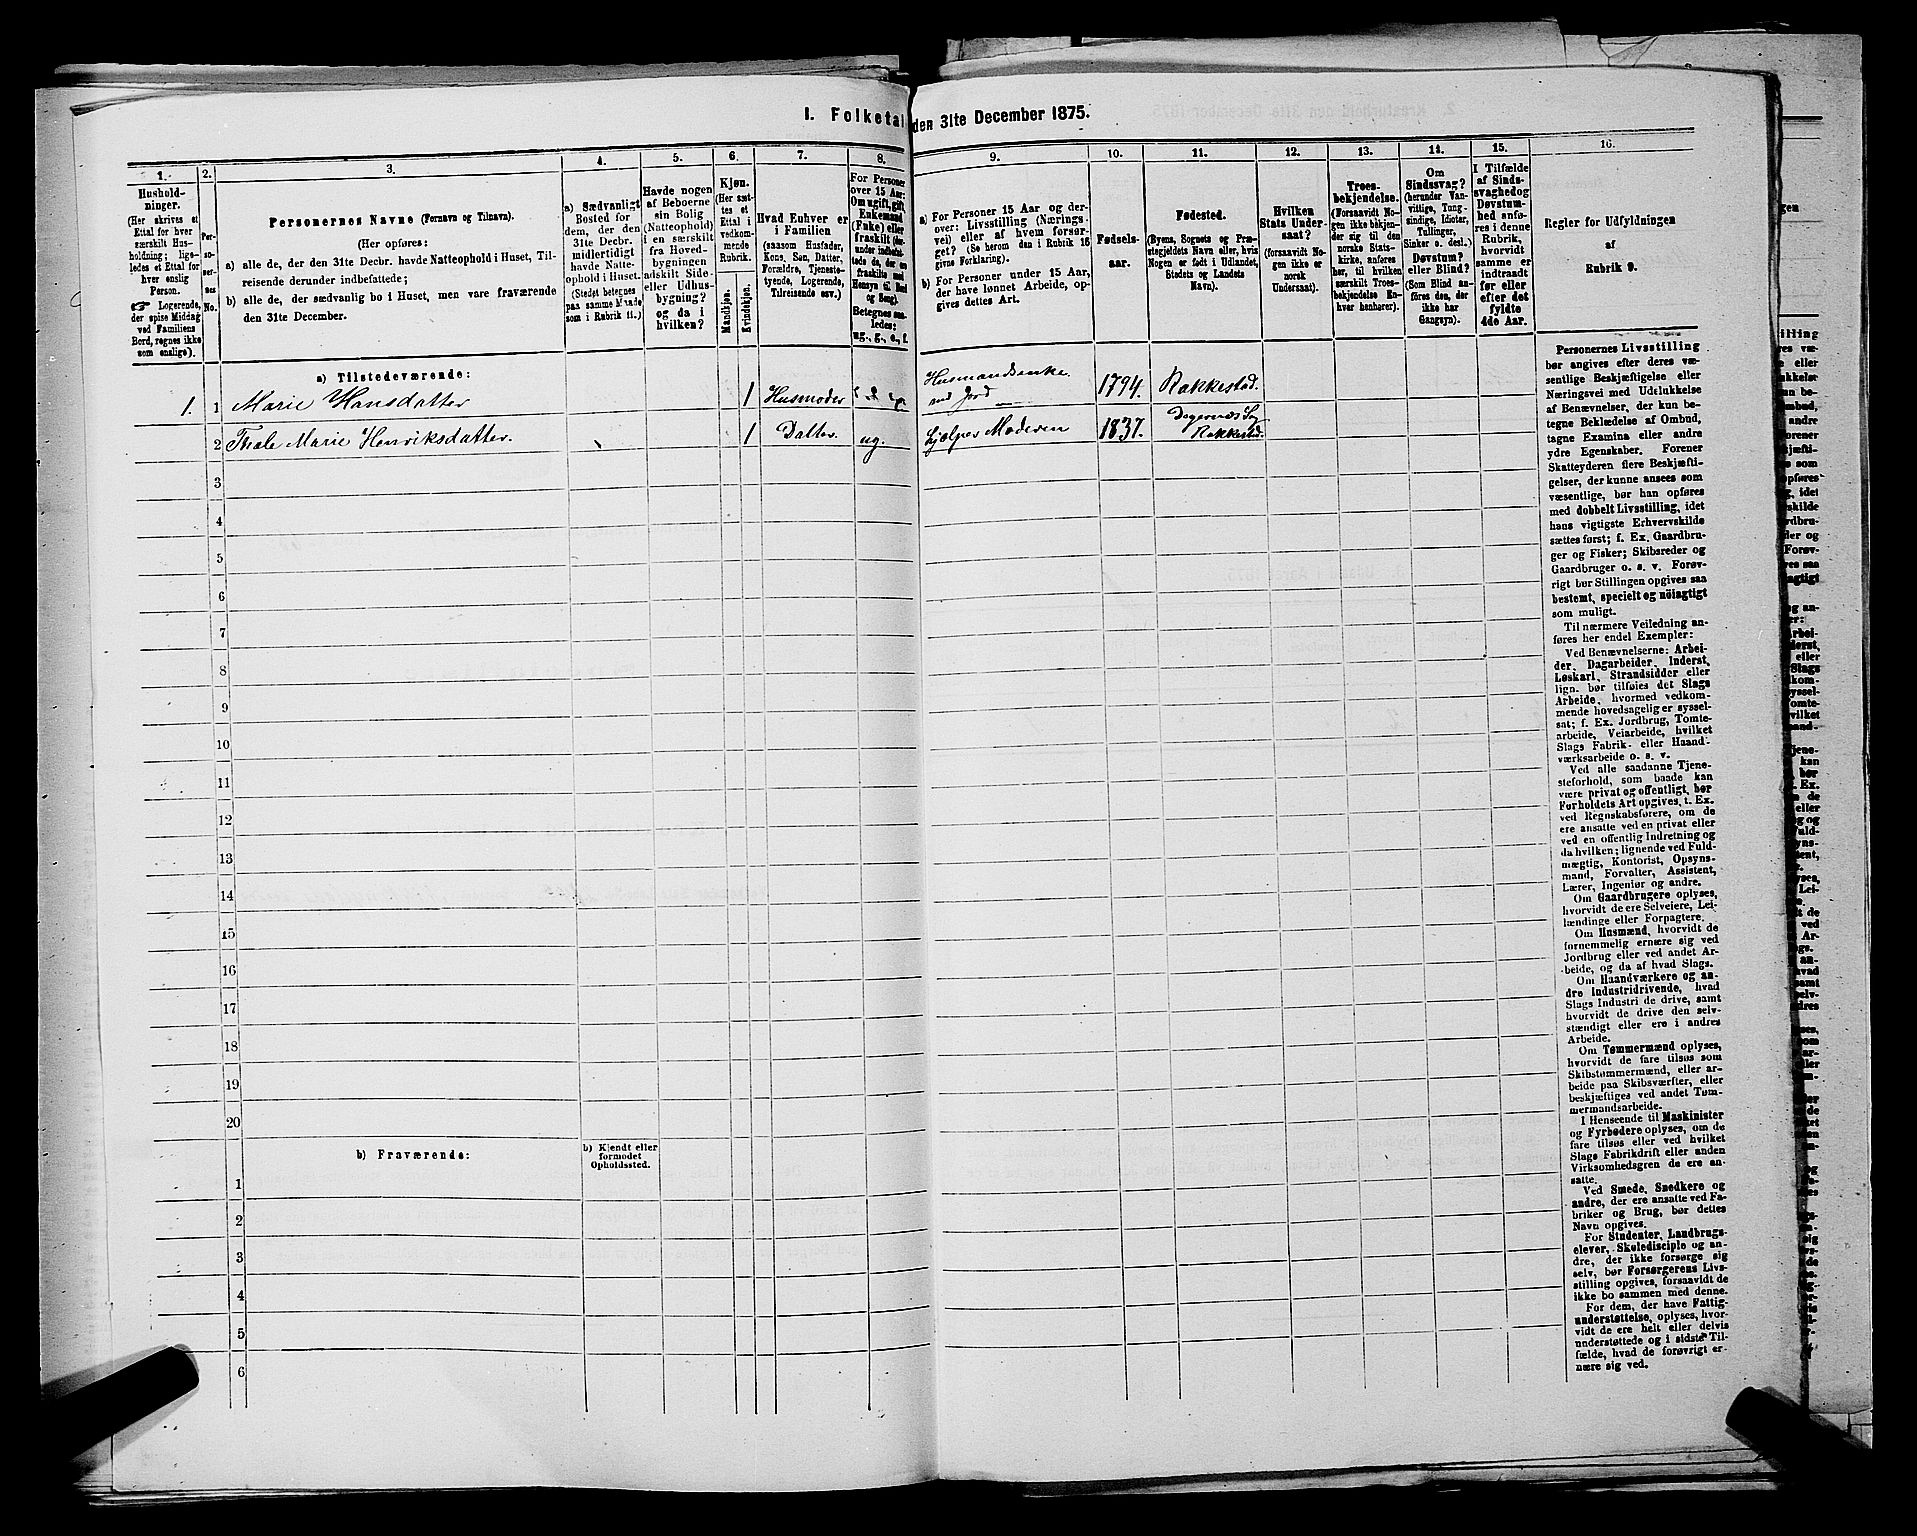 1. Folketal den 31te December 1875.
1.
2.
3.
4.
5.
6.
7.
8.
9.
10.
11.
12.
13.
14.
15.
16.
Hushold-
ninger.
(Her skrives et
Ettal for hver
særskilt Hus-
holdning; lige-
ledes et Ettal for
hver enslig
Person.
☞ Logerende,
der spise Middag
ved Familiens
Bord, regnes ikke
som enslige).
Per-
so-
ner-
nes
No.
Personernes Navne (Fornavn og Tilnavn).
(Her opføres:
a) alle de, der den 31te Decbr. havde Natteophold i Huset, Til-
reisende derunder indbefattede;
b) alle de, der sædvanlig bo i Huset, men vare fraværende
den 31te December.
a) Sædvanligt
Bosted for
dem, der den
31te Decbr.
midlertidigt
havde Natte-
ophold i Huset.
(Stedet betegnes
paa samme Maade
som i Rubrik 11.)
Havde nogen
af Beboerne
sin Bolig
(Natteophold)
i en særskilt
fra Hoved-
bygningen
adskilt Side-
eller Udhus-
bygning?
og da i
hvilken?
Kjøn.
(Her sæt-
tes et
Ettal i
vedkom-
mende
Rubrik.
Mandkjøn.
Kvindekjøn.
Hvad Enhver er
i Familien
(saasom Husfader,
Kone, Søn, Datter,
Forældre, Tjeneste-
tyende, Logerende,
Tilreisende osv.)
For Personer
over 15 Aar:
Om ugift, gift,
Enkemand
(Enke) eller
fraskilt (der-
under indbefat-
tede de, der ere
fraskilte med
Hensyn til Bord
og Seng).
Betegnes saa-
ledes:
ug., g., e., f.
a) For Personer 15 Aar og der-
over: Livsstilling (Nærings-
vei) eller af hvem forsør-
get? (Se herom den i Rubrik 16
givne Forklaring).
b) For Personer under 15 Aar,
der have lønnet Arbeide, op-
gives dettes Art.
Fødsels-
aar.
Fødested.
(Byens, Sognets og Præ-
stegjeldets Navn eller, hvis
Nogen er født i Udlandet,
Stedets og Landets
Navn).
Hvilken
Stats Under-
saat?
(forsaavidt No-
gen ikke er
norsk
Undersaat).
Troes-
bekjendelse.
(Forsaavidt No-
gen ikke bekjen-
der sig til den
norske Stats-
kirke, anføres
her, til hvilken
særskilt Troes-
bekjendelse En-
hver henhører).
Om
Sindssvag?
(herunder Van-
vittige, Tung-
sindige, Idioter,
Tullinger,
Sinker o. desl.)
Døvstum?
eller Blind?
(Som Blind an-
føres den, der
ikke har
Gangsyn).
I Tilfælde
af Sinds-
svaghed og
Døvstum-
hed anfø-
res i denne
Rubrik,
hvorvidt
samme er
indtraadt
før eller
efter det
fyldte
4de Aar.
Regler for Udfyldningen
af
Rubrik 9.
a) Tilstedeværende:
1. 1 Marie Hansdatter 1 Husmoder Husmandsenke med Jord 1794. Rakkestad.
2 Thale Marie Henriksdatter. 1 Datter ug. hjælper Moderen 1837. Degernes Sog Rakkestad.
3
4
5
6
7
8
9
10
11
12
13
14
15
16
17
18
19
20
b) Fraværende:
b) Kjendt eller
formodet
Opholdssted.
1
2
3
4
5
6
Personernes Livsstilling
bør angives efter deres væ-
sentlige Beskjæftigelse eller
Næringsvei med Udelukkelse
af Benævnelser, der kun be-
tegne Beklædelse af Ombud,
tagne Examina eller andre
ydre Egenskaber. Forener
Skatteyderen flere Beskjæfti-
gelser, der kunne ansees som
væsentlige, bør han opføres
med dobbelt Livsstilling, idet
hans vigtigste Erhvervskilde
sættes først; f. Ex. Gaardbru-
ger og Fisker; Skibsreder og
Gaardbruger o. s. v. Forøv-
rigt bør Stillingen opgives saa
bestemt, specielt og nöiagtigt
som muligt.
Til nærmere Veiledning an-
føres her endel Exempler:
Ved Benævnelserne: Arbei-
der, Dagarbeider, Inderst,
Løskarl, Strandsidder eller
lign. bør tilføies det Slags
Arbeide, hvormed vedkom-
mende hovedsagelig er syssel-
sat; f. Ex. Jordbrug, Tomte-
arbeide, Veiarbeide, hvilket
Slags Fabrik- eller Haand-
værksarbeide o. s. v.
Ved alle saadanne Tjene-
steforhold, som baade kan
være privat og offentligt, bør
Forholdets Art opgives, t. Ex.
ved Regnskabsførere, om de
ere ansatte ved en privat eller
ved en offentlig Indretning og
da hvilken; lignende ved Fuld-
mægtig, Kontorist, Opsyns-
mand, Forvalter, Assistent,
Lærer, Ingeniør og andre.
Om Gaardbrugere oplyses,
hvorvidt de ere Selveiere, Lei-
lændinge eller Forpagtere.
Om Husmænd, hvorvidt de
fornemmelig ernære sig ved
Jordbrug eller ved andet Ar-
beide, og da af hvad Slags.
Om Haandværkere og an-
dre Industridrivende, hvad
Slags Industri de drive, samt
hvorvidt de drive den selv-
stændigt eller ere i andres
Arbeide.
Om Tømmermænd oplyses,
hvorvidt de fare tilsøs som
Skibstømmermænd, eller ar-
beide paa Skibsværfter, eller
beskjæftiges ved andet Tøm-
mermandsarbeide.
I Henseende til Maskinister
og Fyrbødere oplyses, om de
fare tilsøs eller ved hvilket
Slags Fabrikdrift eller anden
Virksomhedsgren de ere an-
satte.
Ved Smede, Snedkere og
andre, der ere ansatte ved Fa-
briker og Brug, bør dettes
Navn opgives.
For Studenter, Landbrugs-
elever, Skoledisciple og an-
dre, der ikke forsørge sig
selv, bør Forsørgerens Livs-
stilling opgives, forsaavidt de
ikke bo sammen med denne.
For dem, der have Fattig-
understøttelse, oplyses, hvor-
vidt de ere helt eller delvis
understøttede og i sidste Til-
fælde, hvad de forøvrigt er-
nære sig ved.